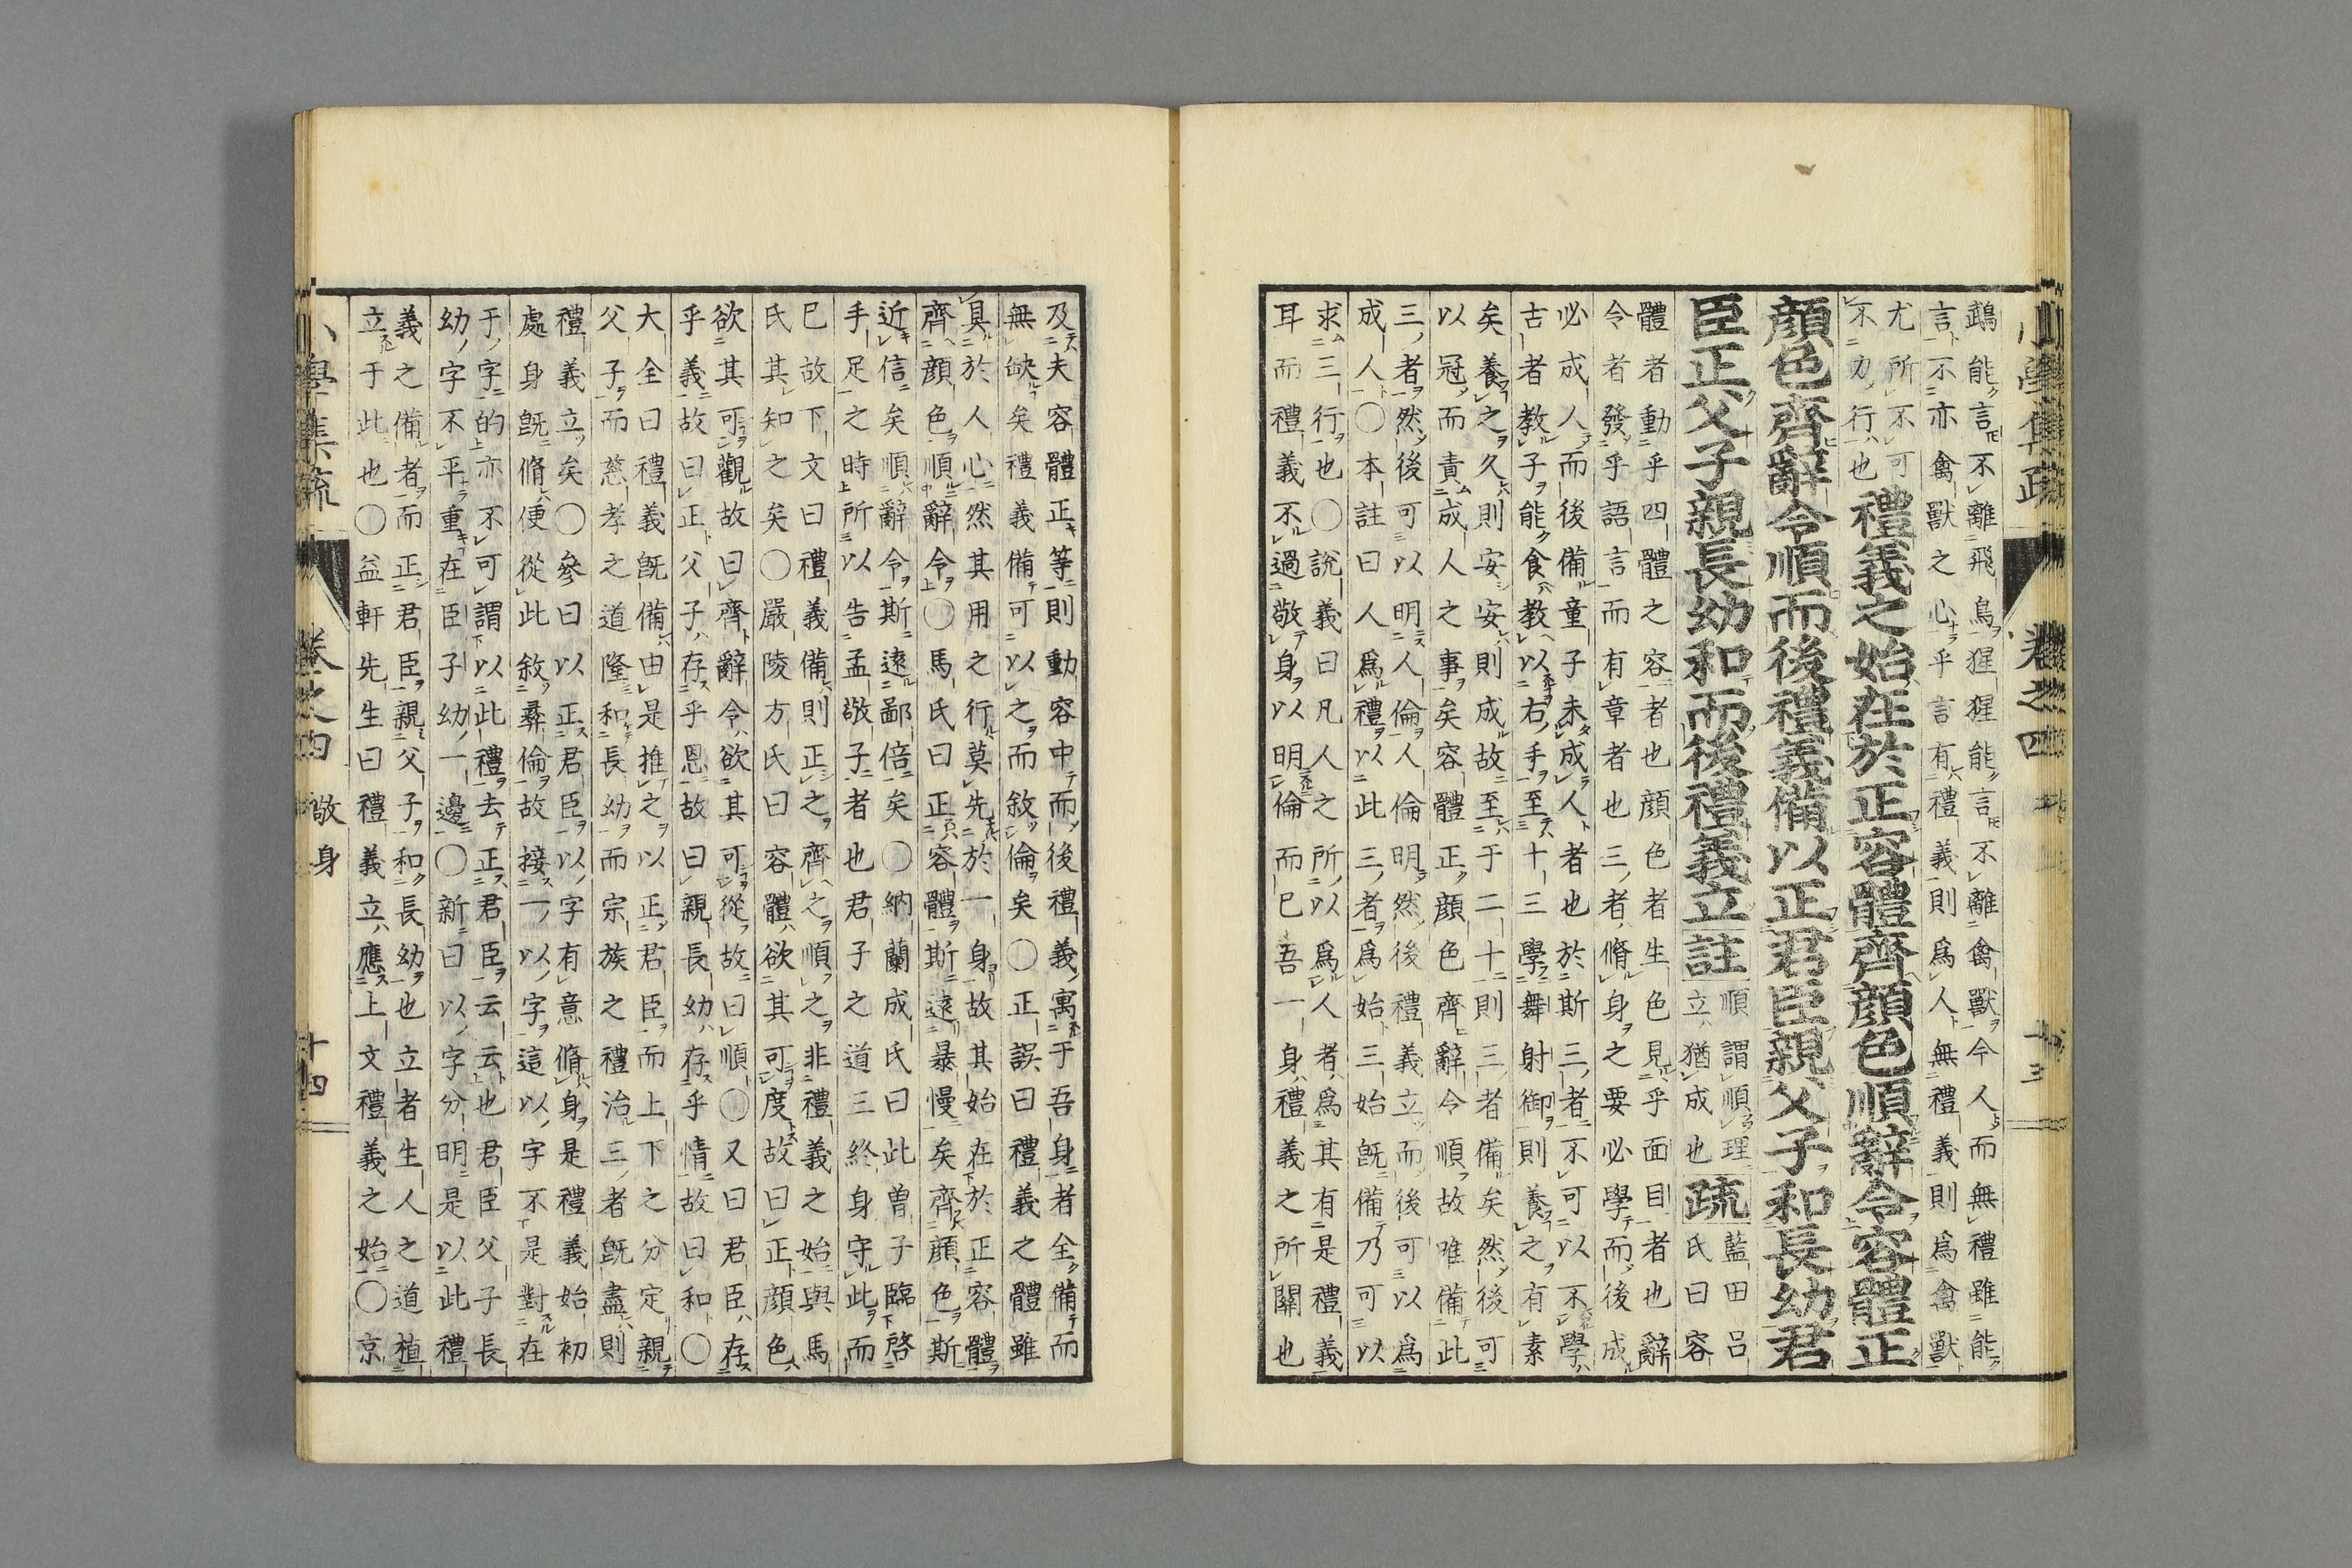 鵡能言不離飛鳥猩猩能言不離禽獸今人而無禮雖能
言不亦禽獸之心乎言有禮義則爲人無禮義則爲禽獸
尤所不可
不力行也
禮義之始在於正容體齊顔色順辭令容體正
顔色齊辭令順而後禮義備以正君臣親父子和長幼君
臣正父子親長幼和而後禮義立註
順謂順理
立猶成也
疏
藍田呂
氏曰容
體者動乎四體之容者也顔色者生色見乎面目者也辭
令者發乎語言而有章者也三者脩身之要必學而後成
必成人而後備童子未成人者也於斯三者不可以不學
古者教子能食教以右手至十三學舞射御則養之有素
矣養之久則安安則成故至于二十則三者備矣然後可
以冠而責成人之事矣容體正顔色齊辭令順故唯備此
三者然後可以明人倫人倫明然後禮義立而後可以爲
成人〇本註曰人爲禮以此三者爲始三始既備乃可以
求三行也〇說義曰凡人之所以爲人者爲其有是禮義
耳而禮義不過敬身以明倫而已吾一身禮義之所關也
小學集疏
卷之四
十三
及夫容體正等則動容中而後禮義寓于吾身者全備而
無缺矣禮義備可以之而敘倫矣〇正誤曰禮義之體雖
具於人心然其用之行莫先於一身故其始在於正容體
齊顔色順辭令〇馬氏曰正容體斯遠暴慢矣齊顔色斯
近信矣順辭令斯遠鄙倍矣〇納蘭成氏曰此曾子臨啓
手足之時所以告孟敬子者也君子之道三終身守此而
已故下文曰禮義備則正之齊之順之非禮義之始與馬
氏其知之矣〇嚴陵方氏曰容體欲其可度故曰正顔色
欲其可觀故曰齊辭令欲其可從故曰順〇又曰君臣存
乎義故曰正父子存乎恩故曰親長幼存乎情故曰和〇
大全曰禮義既備由是推之以正君臣而上下之分定親
父子而慈孝之道隆和長幼而宗族之禮治三者既盡則
禮義立矣〇參曰以正君臣以字有意脩身是禮義始初
處身既脩便從此敘彞倫故接一以字這以字不是對在
于字的亦不可謂以此禮去正君臣云云也君臣父子長
幼字不平重在臣子幼一邊〇新曰以字分明是以此禮
義之備者而正君臣親父子和長幼也立者生人之道植
立于此也〇益軒先生曰禮義立應上文禮義之始〇京
小學集疏
卷之四
敬身
十四